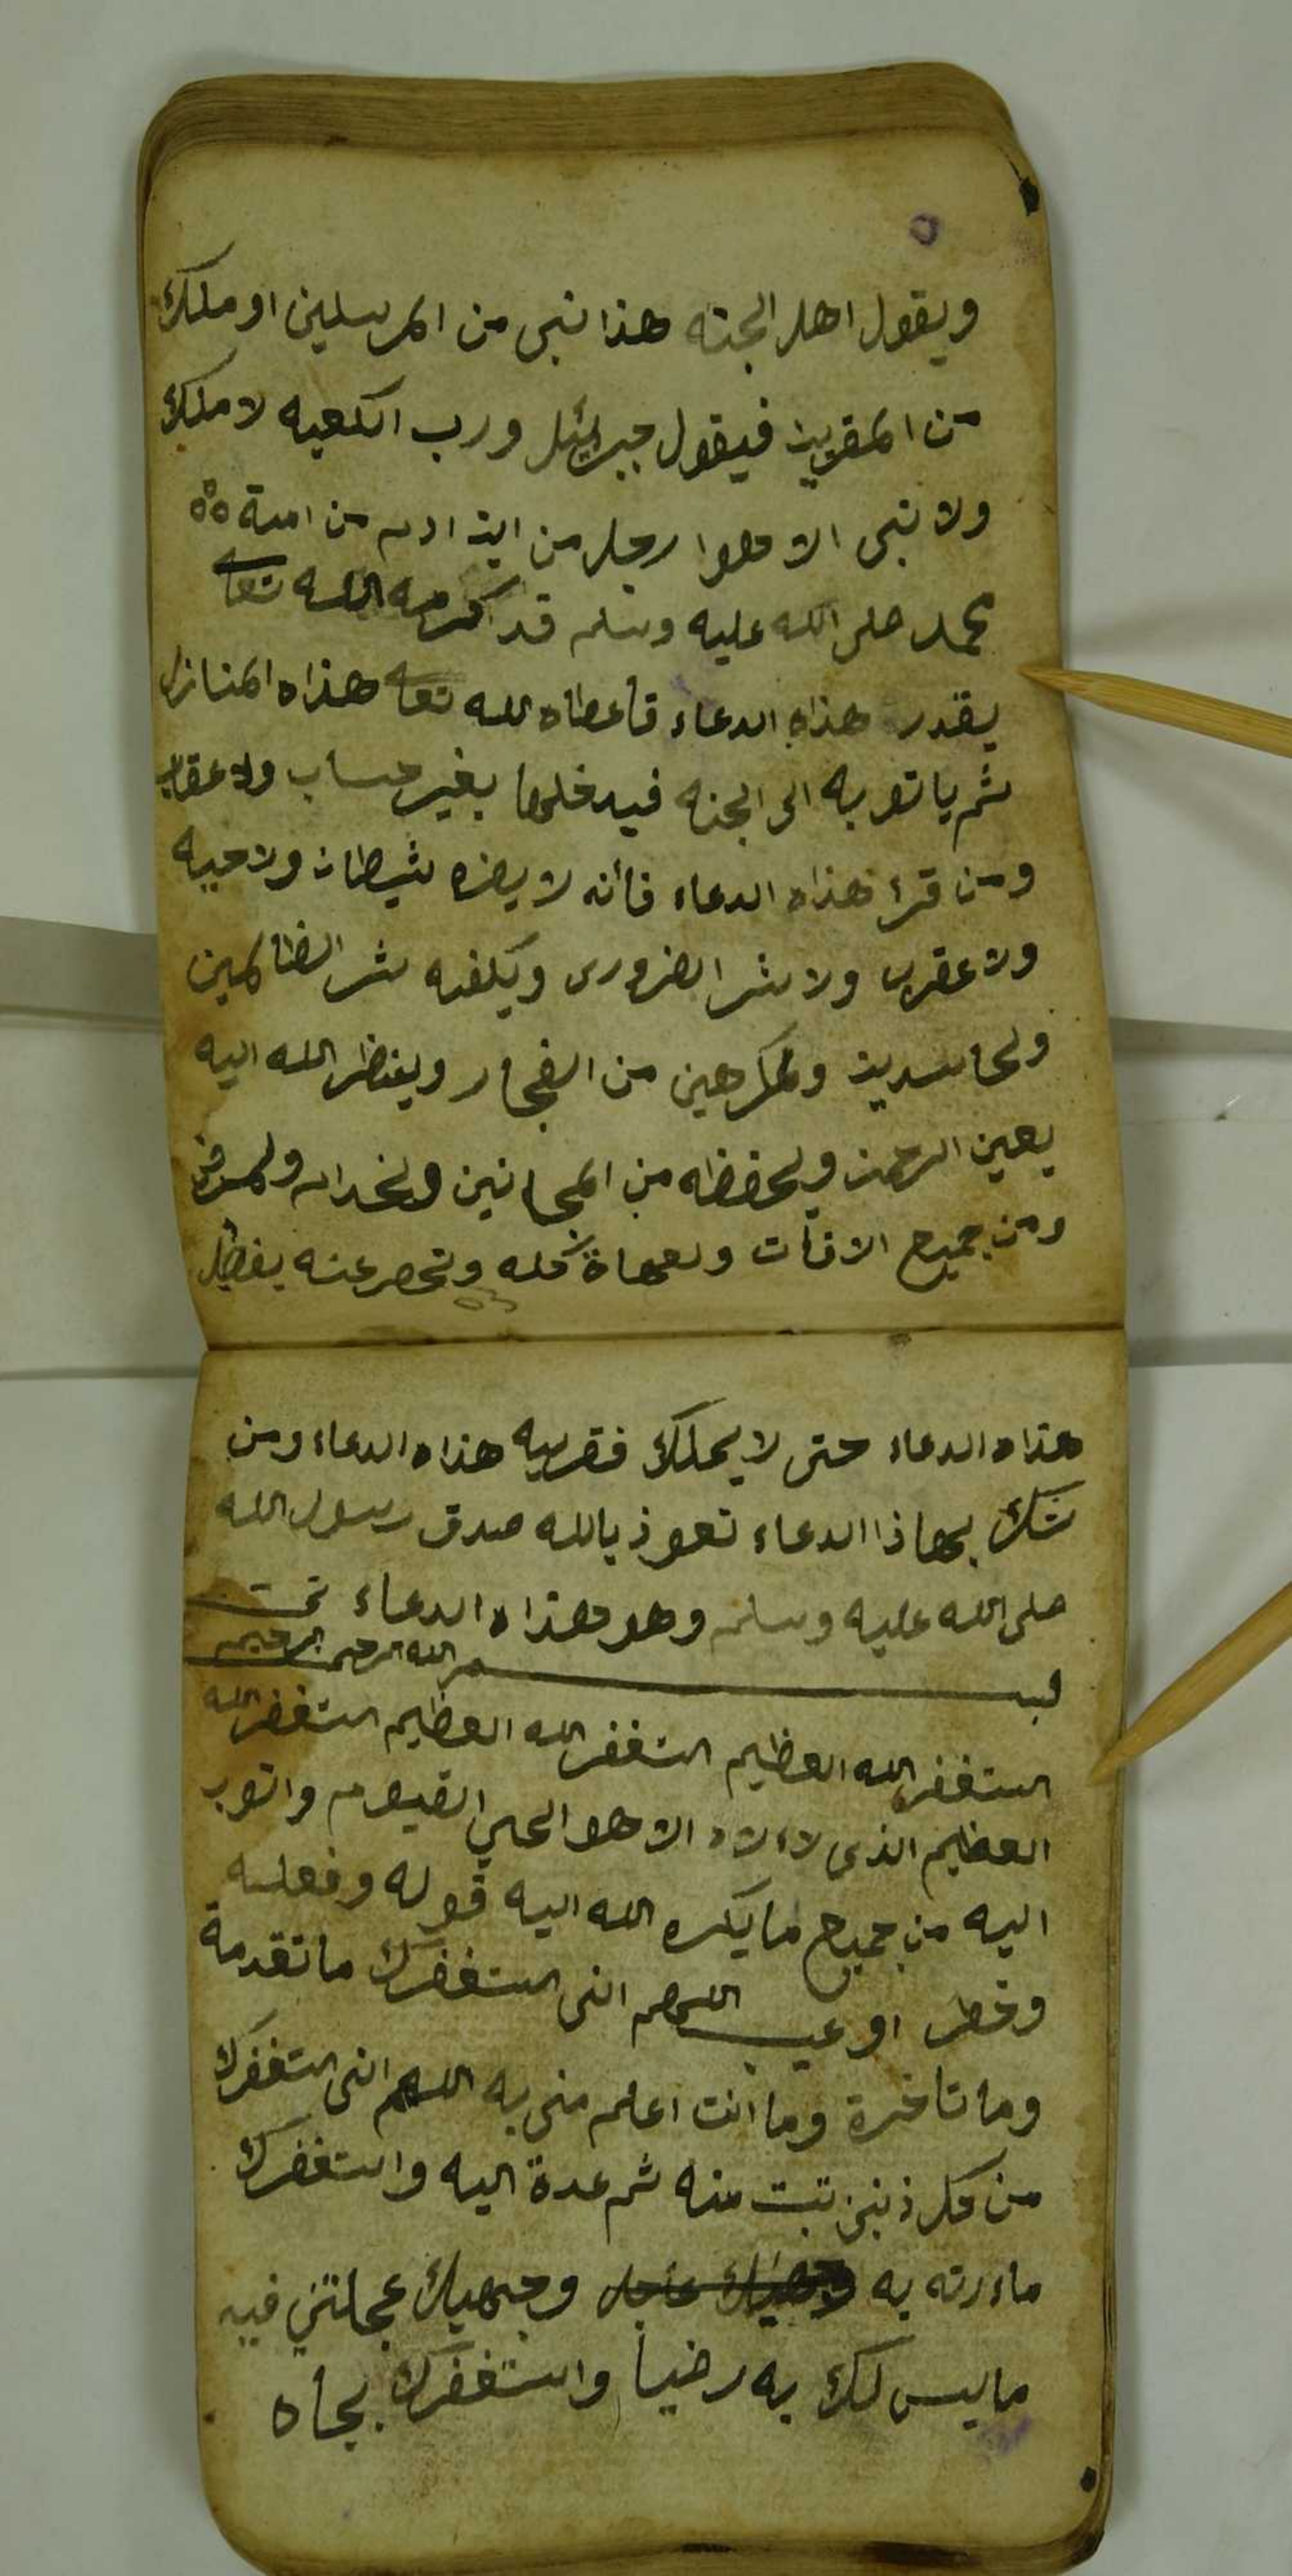 ويقول اهل الجنه هذا نبى من المرسلين او ملك
من المقربين فيقول جبرائيل ورب الكعبه لا ملك
ولا نبى الا هوا رجل من ابن ادم من امة
محمد صلى الله عليه وسلم قد اكرمه الله تعا
يقدر هذاه الدعاء فأعطاه لله تعا هذاه المنازل
ثم ياتو به الى الجنه فيدخلها بغير حساب ولا عقاب
ومن قرأ هذاه الدعاء فأنه لا يضره شيطان ولا حيه
ولا عقرب ولا شر الضرورى ويكفيه شر الظالمين
ولحاسدين ولمكرهين من الفجار وينظر الله اليه
بعين الرحمن ويحفظه من المجانين ولخدام
ومن جميع الافات ولعمهاة كله وتحصر عنه بفضل
هذاه الدعاء حتى لا يهلك فقريه هذاه الدعاء ومن
شك بهاذا الدعاء تعوذ بالله صدق رسول الله
صلى الله عليه وسلم وهو هذاه الدعاء تمت
بسم الله الرحمن الرحيم
استغفر الله العظيم استغفر الله العظيم استغفر الله
العظيم الذى لاءلاه الا هو الحي القيوم واتوب
اليه من جميع ما يكره الله اليه قوله وفعله
وخطر او عيب اللهم انى استغفرك ما تقدمة
وما تاخرة وما انت اعلم منى به اللهم انى استغفرك
من كل ذنبن تبت منه ثم عدة اليه واستغفرك
ماء ردته به وجهيك عجلتني فيه
ما ليس لك به رضيا واستغفرك بجاه